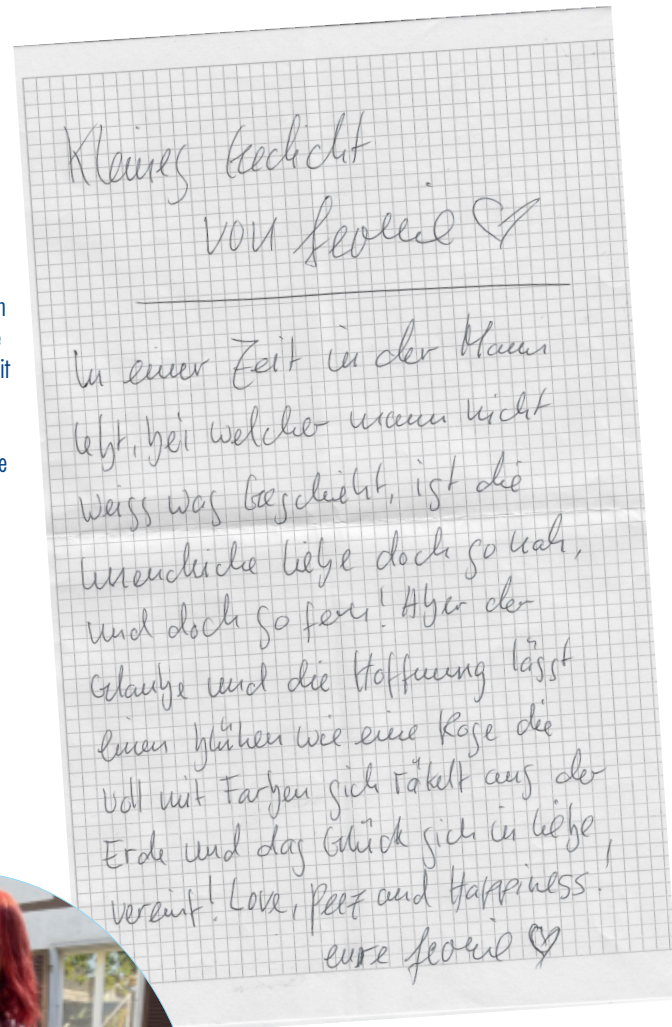 Kleines Gedicht
von Leonie ♡
In einer Zeit in der Mann
lebt, bei welcher mann nicht
weiss was Geschieht, ist die
unendliche liebe doch so nah,
und doch so fern! Aber der
Glaube und die Hoffnung lässt
einen blühen wie eine Rose die
voll mit Farben sich räkelt aus der
Erde und das Glück sich in liebe
vereint! Love, Peez and Happiness!
eure Leonie ♡
n
it
e